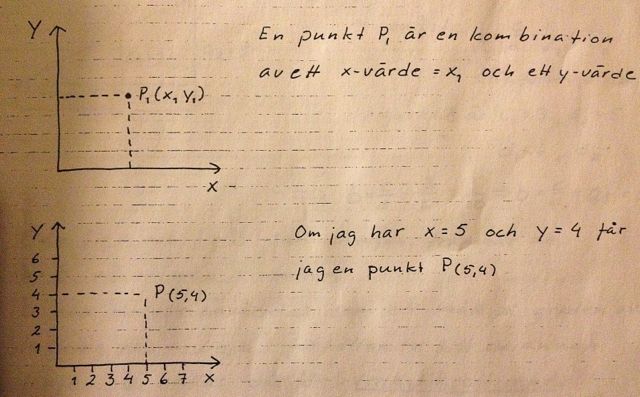 Y
En punkt P₁ är en kombination
av ett x-värde = x₁ och ett y-värde
P₁(x₁ y₁)
X
Y
Om jag har x = 5 och y = 4 får
jag en punkt P(5,4)
6
5
4
P(5,4)
3
2
1
1 2 3 4 5 6 7 X